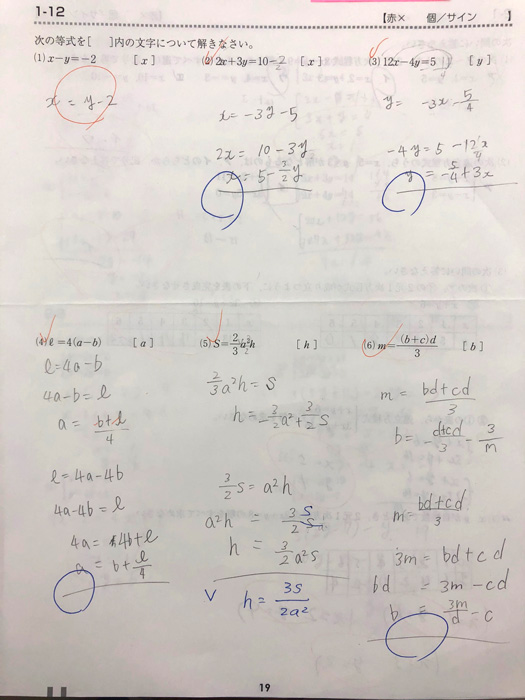 1-12 【赤× 個/サイン 】
次の等式を[ ]内の文字について解きなさい。
(1) x−y=−2 [x]
x = y-2
(2) 2x+3y=10 [x]
x = -3y-5
2x = 10-3y
x = 5-3/2y
(3) 12x−4y=5 [y]
y = -3x-5/4
-4y = 5-12x
y = -5/4+3x
(4) ℓ=4(a−b) [a]
ℓ=4a-b
4a-b=ℓ
a = b+ℓ/4
ℓ=4a-4b
4a-4b=ℓ
4a=4b+ℓ
a = b+ℓ/4
(5) S=2/3a²h [h]
2/3a²h=S
h=-3/2a²+3/2S
3/2S=a²h
a²h = 3/2S
h = 3/2a²S
h = 3S/2a²
(6) m=(b+c)d/3 [b]
m = bd+cd/3
b=-d+cd/3-3/m
m=bd+cd/3
3m=bd+cd
bd =3m-cd
b = 3m/d-c
19